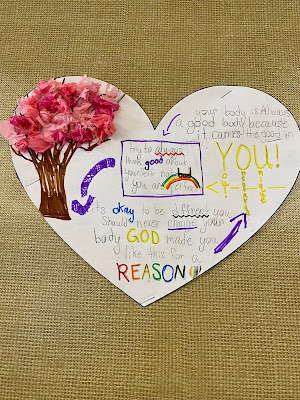 your body is Always
a good body because
it carries the good in
YOU!
Try to always
think good about
yourself
you are
its okay to be different you
Should never change your
body GOD made you
like this for a
REASON